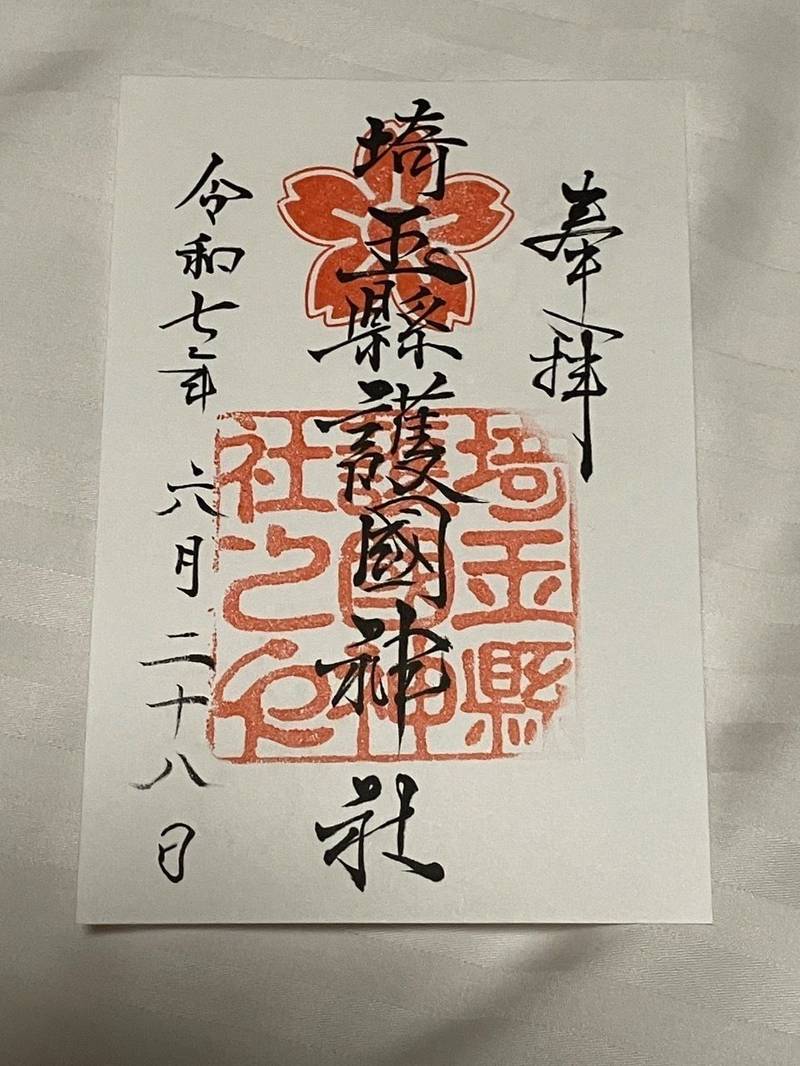 奉拝
埼玉縣護國神社
埼玉縣
護国神
社之印
令和七年 六月二十八日